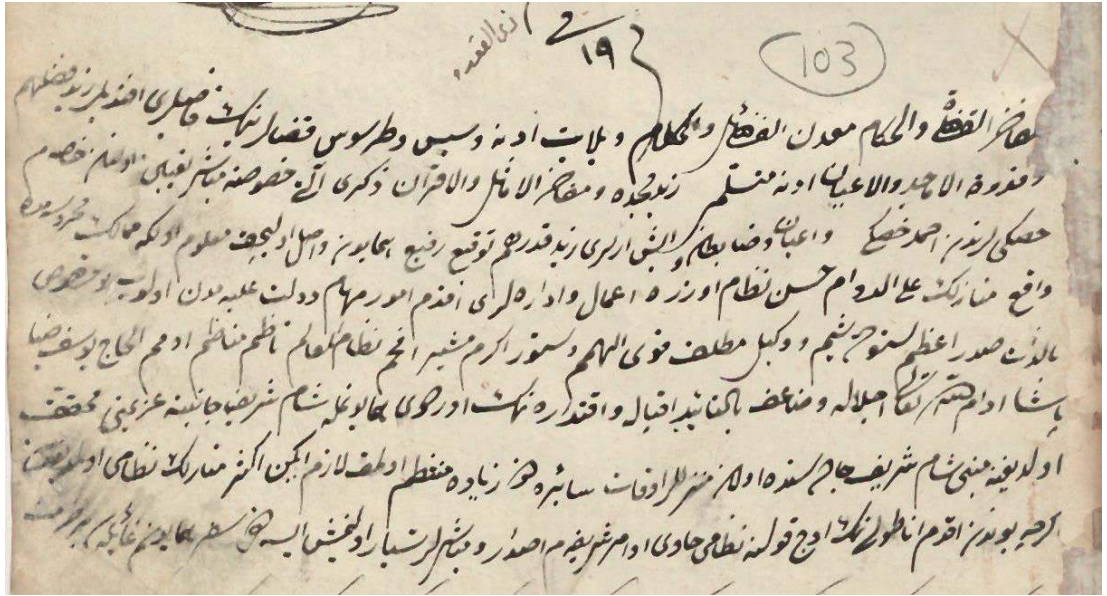 ذی القعده
١٩
103
مفاخر القضاة والحكام معدن الفضائل والكلام ولايات ادنه وسيس وطرسوس قضالرينك قاضيلرى افنديلر زيد فضلهم
وقدوة الاماجد والاعيان ادنه متسلمى زيد مجده ومفاخر الاماثل والاقران ذكرى آتى خصوصه مباشر تعيين اولنان خاصه م
خصكيلرندن احمد خصكى واعيان وضابطان وايش ارلرى زيد قدرهم توقيع رفيع همايونم واصل اوليجق معلوم اوله كه ممالك محروسه مده
واقع منازلك على الدوام حسن نظام اوزره اعمال واداره لرى اقدم امور مهام دولت عليه مدن اولوب بو خصوص
بالذات صدر اعظم ستوده شيم ووكيل مطلق قوى الهمم دستور اكرم مشير افخم نظام العالم ناظم مناظم الامم الحاج يوسف ضيا
پاشا ادام الله تعالى اجلاله وضاعف بالتأييد اقبال واقتداره نك اوردوى همايونمله شام شريف جانبنه عزيمتى محقق
اولديغنه مبنى شام شريف جاده سنده اولان منزللر اوقات سائره دن زياده منتظم اولمق لازم ايكن اكثر منازلك نظامى اولمديغندن
اگرچه بوندن اقدم اناطولينك اوج قولنه نظامى حاوى اوامر شريفه م اصدار ومباشرلر تسيار اولنمش ايسه ده سفر همايونم غائله سى